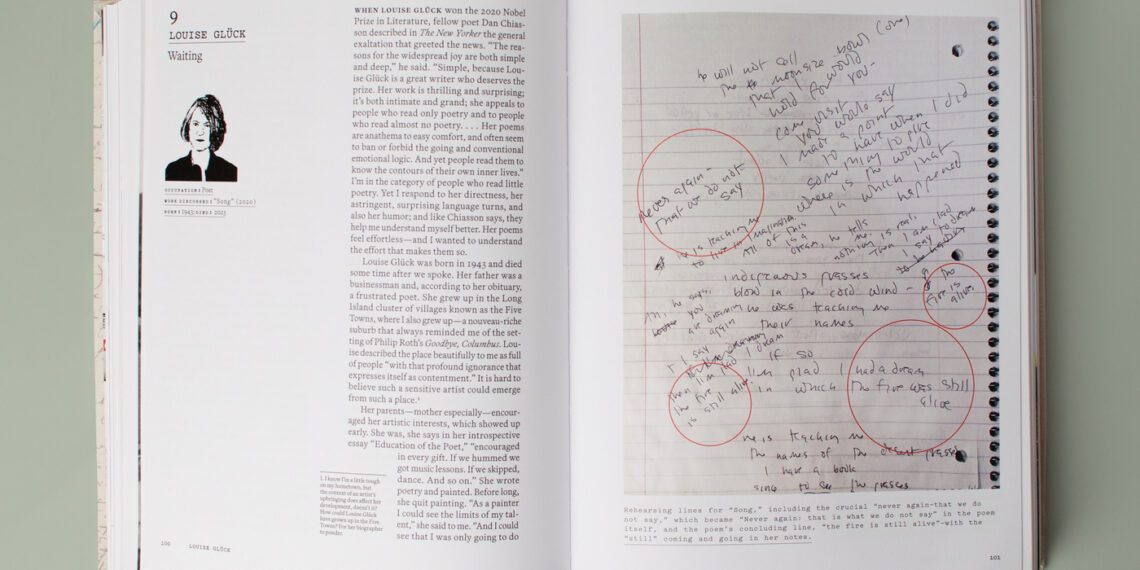 9
LOUISE GLÜCK
Waiting
OCCUPATION: Poet
WORK DISCUSSED: "Song" (2020)
BORN: 1943; DIED: 2023
WHEN LOUISE GLÜCK won the 2020 Nobel
Prize in Literature, fellow poet Dan Chias-
son described in The New Yorker the general
exaltation that greeted the news. "The rea-
sons for the widespread joy are both simple
and deep," he said. "Simple, because Lou-
ise Glück is a great writer who deserves the
prize. Her work is thrilling and surprising;
it's both intimate and grand; she appeals to
people who read only poetry and to people
who read almost no poetry. . . . Her poems
are anathema to easy comfort, and often seem
to ban or forbid the going and conventional
emotional logic. And yet people read them to
know the contours of their own inner lives."
I'm in the category of people who read little
poetry. Yet I respond to her directness, her
astringent, surprising language turns, and
also her humor; and like Chiasson says, they
help me understand myself better. Her poems
feel effortless—and I wanted to understand
the effort that makes them so.
Louise Glück was born in 1943 and died
some time after we spoke. Her father was a
businessman and, according to her obituary,
a frustrated poet. She grew up in the Long
Island cluster of villages known as the Five
Towns, where I also grew up—a nouveau-riche
suburb that always reminded me of the set-
ting of Philip Roth's Goodbye, Columbus. Lou-
ise described the place beautifully to me as full
of people "with that profound ignorance that
expresses itself as contentment." It is hard to
believe such a sensitive artist could emerge
from such a place.¹
Her parents—mother especially—encour-
aged her artistic interests, which showed up
early. She was, she says in her introspective
essay "Education of the Poet," "encouraged
in every gift. If we hummed we
got music lessons. If we skipped,
dance. And so on." She wrote
poetry and painted. Before long,
she quit painting. "As a painter
I could see the limits of my tal-
ent," she said to me. "And I could
see that I was only going to do
1. I know I'm a little tough
on my hometown, but
the context of an artist's
upbringing does affect her
development, doesn't it?
How could Louise Glück
have grown up in the Five
Towns? For her biographer
to ponder.
100 LOUISE GLÜCK
he will not call
that I would
hold for you–
come visit
you would say
I made a point
to have when I did
something to give
where is the world
in which that
happened
never again –
that we do not
say
he is teaching me
to live in imagination.
All of this
is a
dream, he tells
me.
nothing is real.
Then I am glad
I say to dream
indigenous grasses
blow in the cold wind –
he was teaching me
their names
the
fire is
alive.
he says,
you
are dreaming
again
I say
then I'm glad I dream
the fire
is still alive.
If so
I'm glad I had a dream
in which the fire was still
alive
he is teaching me
the names of the desert grasses
I have a book
since to see the grasses
Rehearsing lines for "Song," including the crucial "never again—that we do
not say," which became "Never again: that is what we do not say" in the poem
itself, and the poem's concluding line, "the fire is still alive"—with the
"still" coming and going in her notes.
101